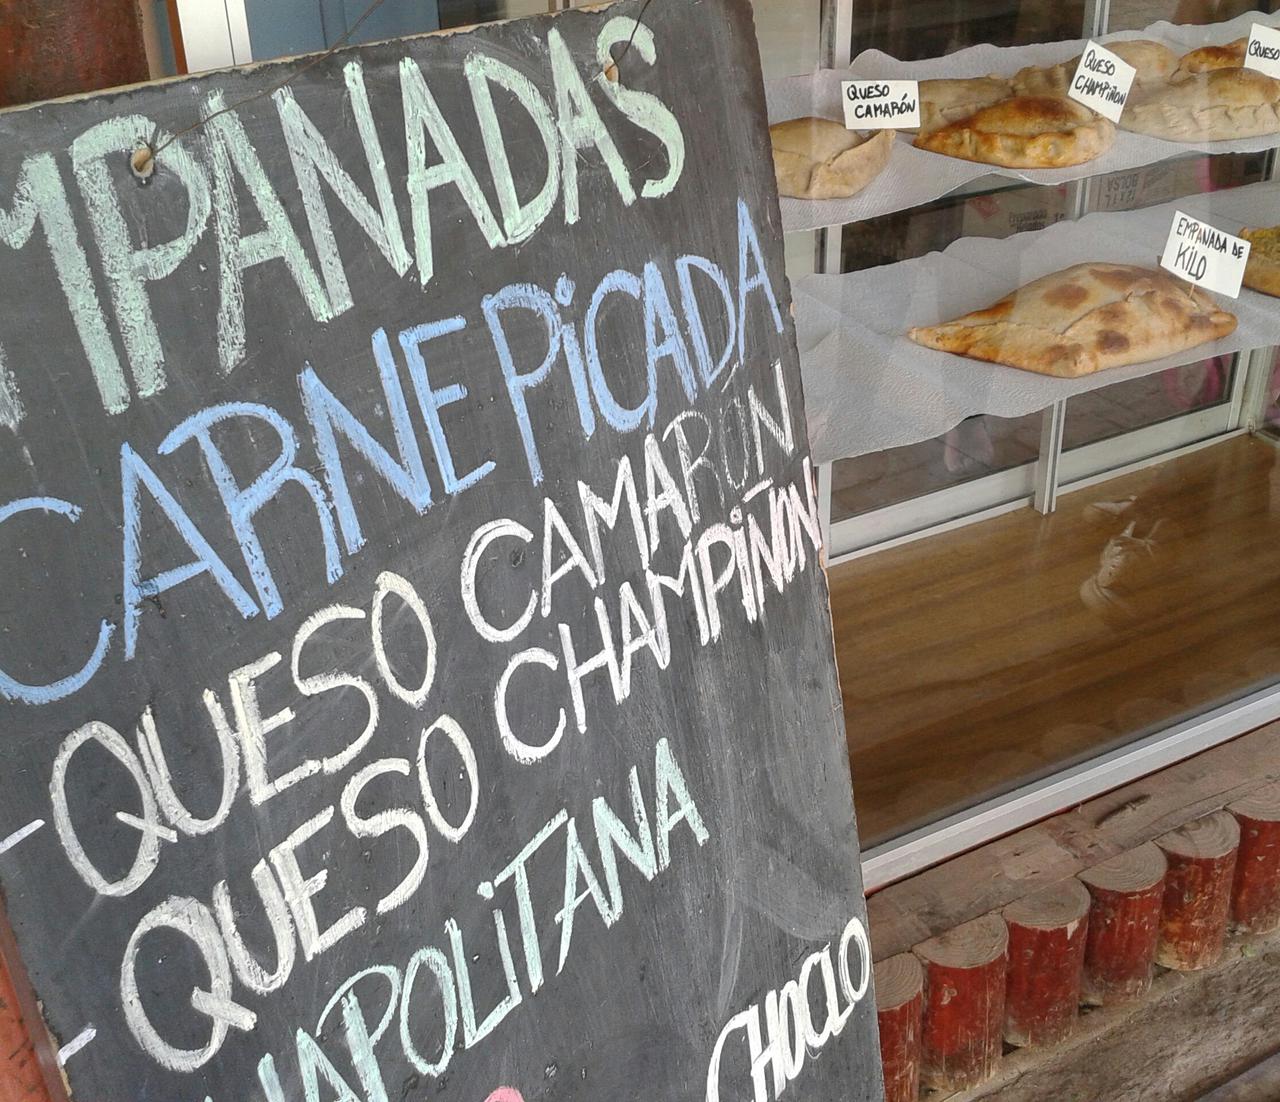 MPANADAS
CARNE PiCADA
-QUESO CAMARON
-QUESO CHAMPIÑON
NAPOLiTANA
CHOCLO
QUESO
CAMARÓN
QUESO
CHAMPIÑON
QUESO
EMPANADA DE
KILO